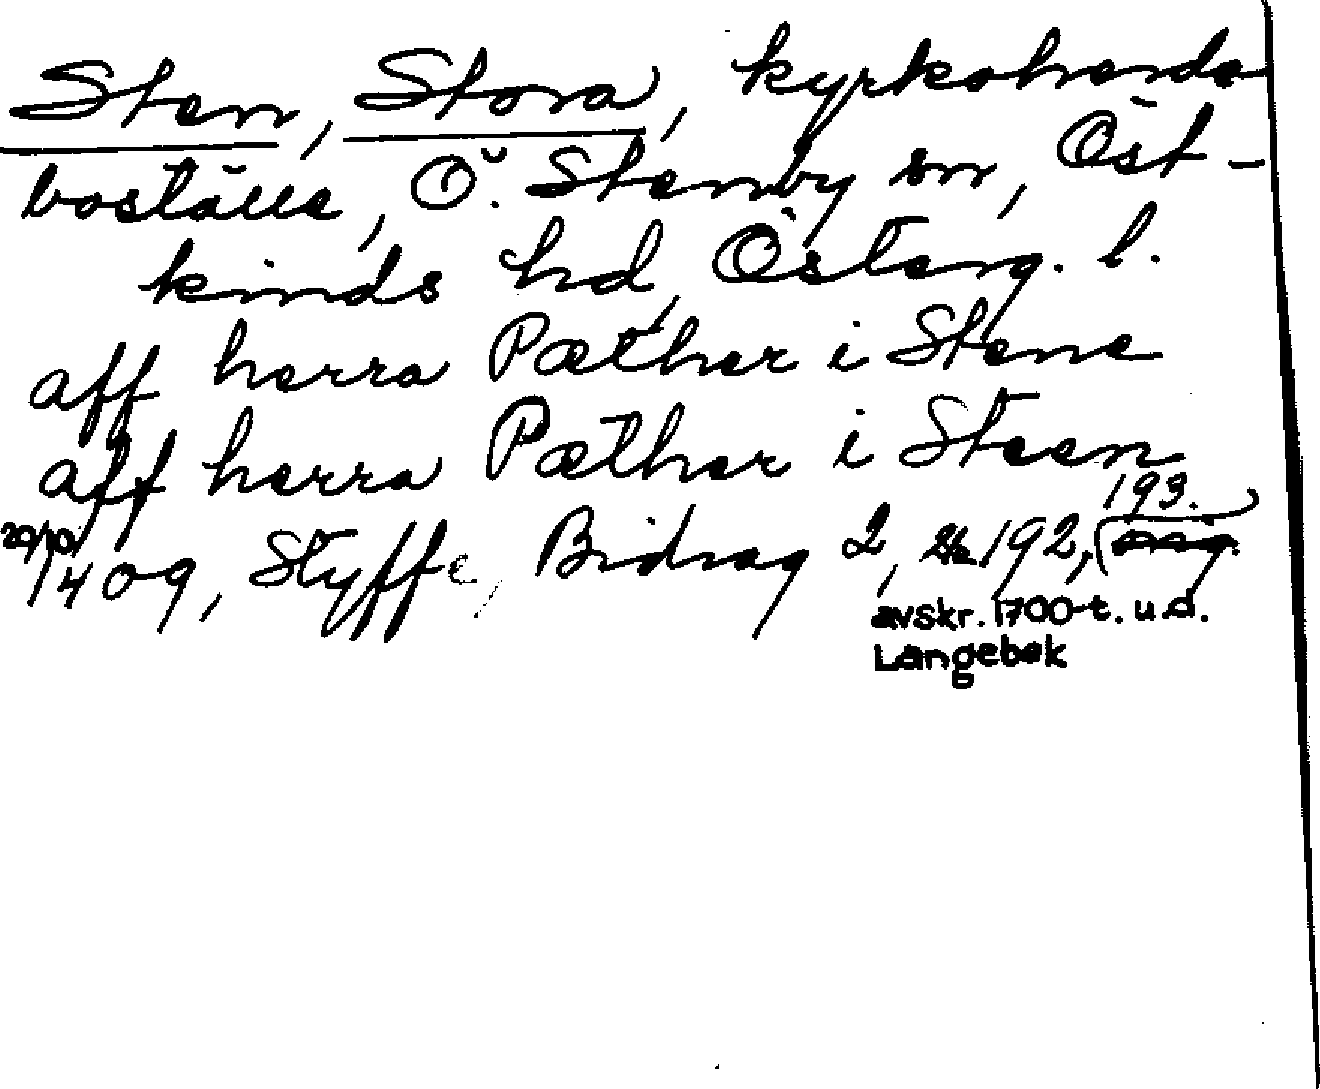 Sten, Stora, kyrkoherde
boställe, Ö. Stenby sn, Öst-
kinds hd, Österg. l.
aff herra Pæther i Stene
aff herra Pæther i Steen
193.
20/10 1409, Styffe, Bidrag 2, s. 192,
avskr. 1700-t. u.d.
Langebek